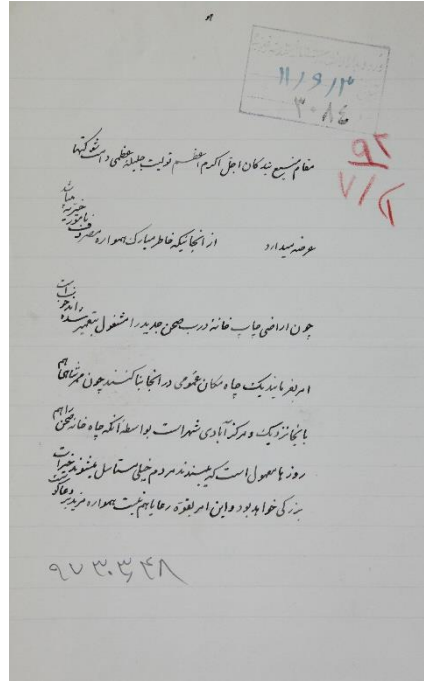 ۱۱/۹/۱۳
۳۰۸۴
۹۲
مقام منیع بندگان اجل اکرم اعظم تولیت جلیله عظمی دامت شوکتها
عرضه میدارد از آنجائیکه خاطر مبارک همواره مصروف بامورات خیریه
چون اراضی چاپ خانه درب صحن جدید را مشغول تعمیر شده اند
امر بفرمایند یک چاه مکان عمومی در آنجا بنا کنند چون ممر شاهی هم
باینجا نزدیک و مرکز آبادی شهر است بواسطه آنکه چاه خانه صحن را هم
روزها معمول است که میبندند مردم خیلی مستاصل میشوند
بزرگی خواهد بود و این امر بقوه رعایا هم نیست همواره مزید بر دعاگو
۹۷۳۰۳٫۴۸